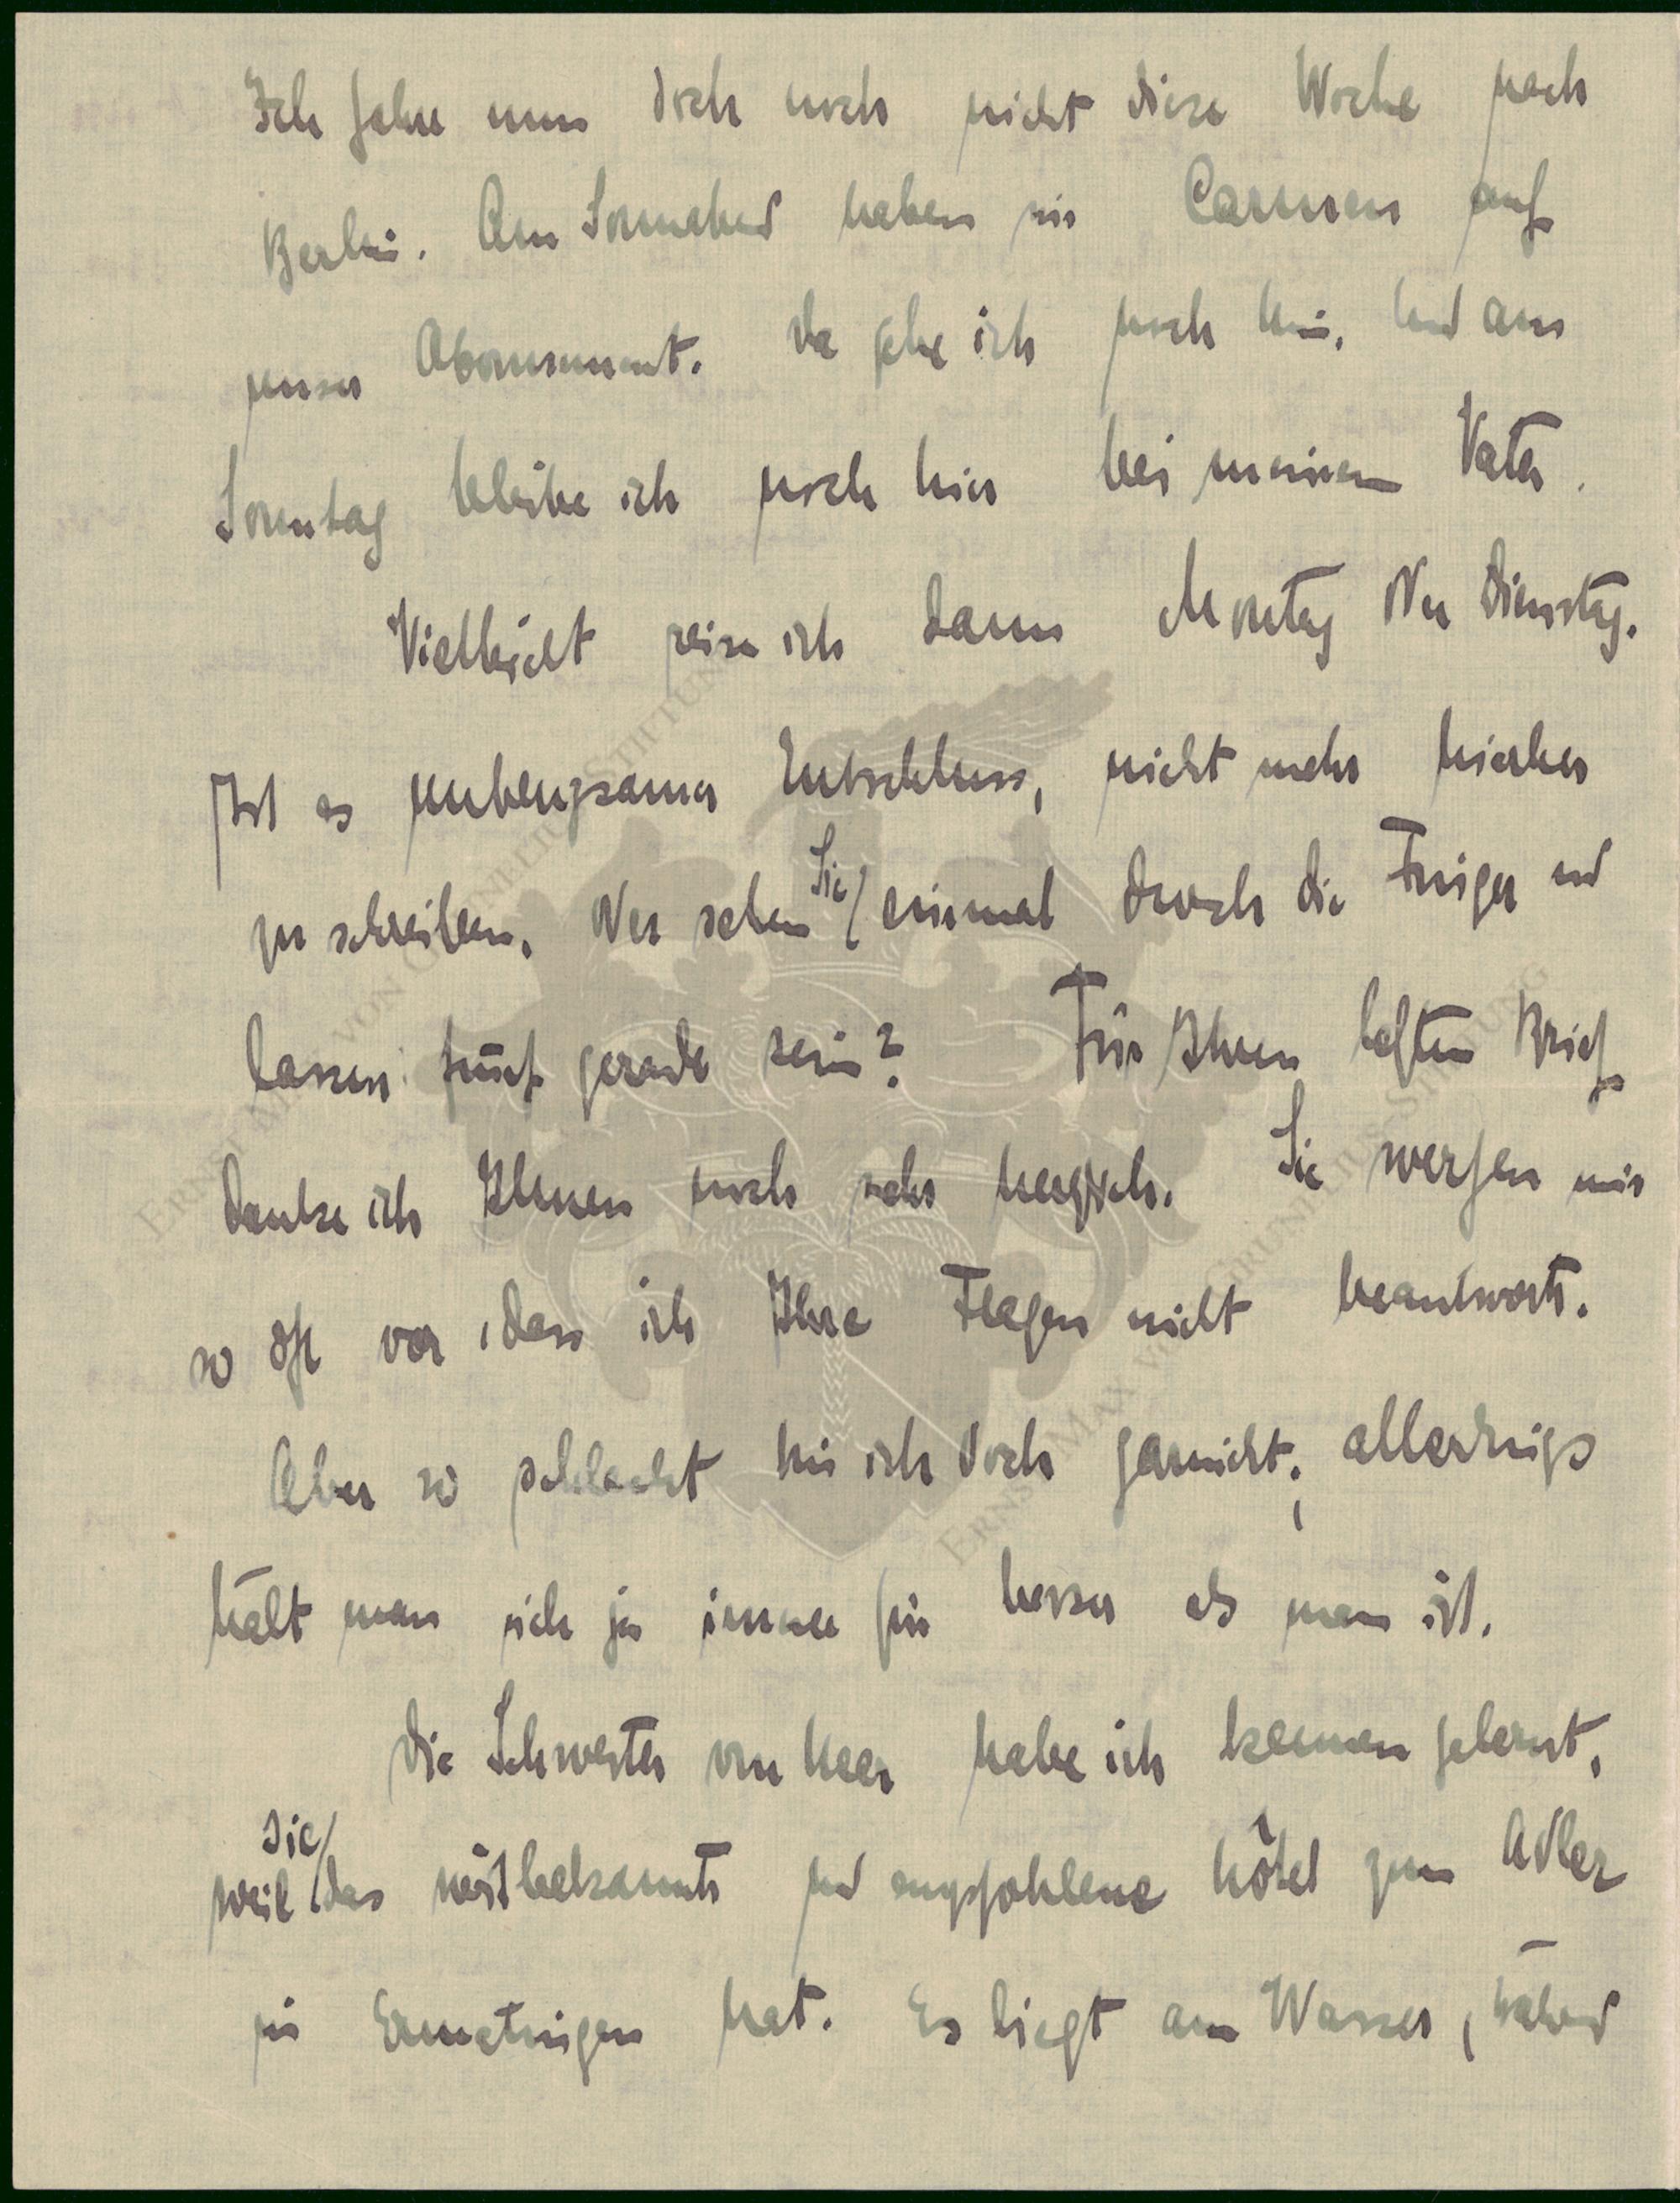 Ich fahre nun doch noch nicht diese Woche nach
Berlin. Am Sonnabend haben wir Carmen auf
unser Abonnement. Da gehe ich noch hin. Und am
Sonntag bleibe ich noch hier bei meinem Vater.
Vielleicht reise ich dann Montag oder Dienstag.
Ist es unbeugsamer Entschluss, nicht mehr hierher
zu schreiben. Oder sehen Sie einmal durch die Finger und
lassen fünf gerade sein? Für Ihren letzten Brief
danke ich Ihnen noch sehr herzlich. Sie werfen mir
so oft vor, dass ich Ihre Fragen nicht beantworte.
Aber so schlecht bin ich doch garnicht; allerdings
hält man sich ja immer für besser als man ist.
Die Schwester von Heer habe ich kennen gelernt,
weil sie das weitbekannte und empfohlene Hôtel zum Adler
in Ermatingen hat. Es liegt am Wasser, während
ERNST MAX VON GRUNELIUS STIFTUNG
ERNST MAX VON GRUNELIUS STIFTUNG